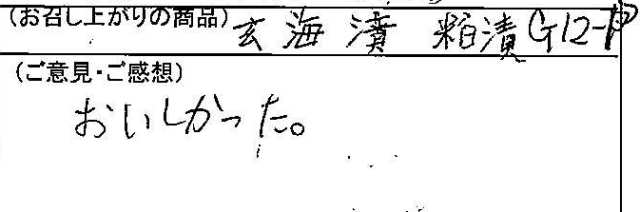 (お召し上がりの商品) 玄海漬 粕漬G12-
(ご意見・ご感想)
おいしかった。